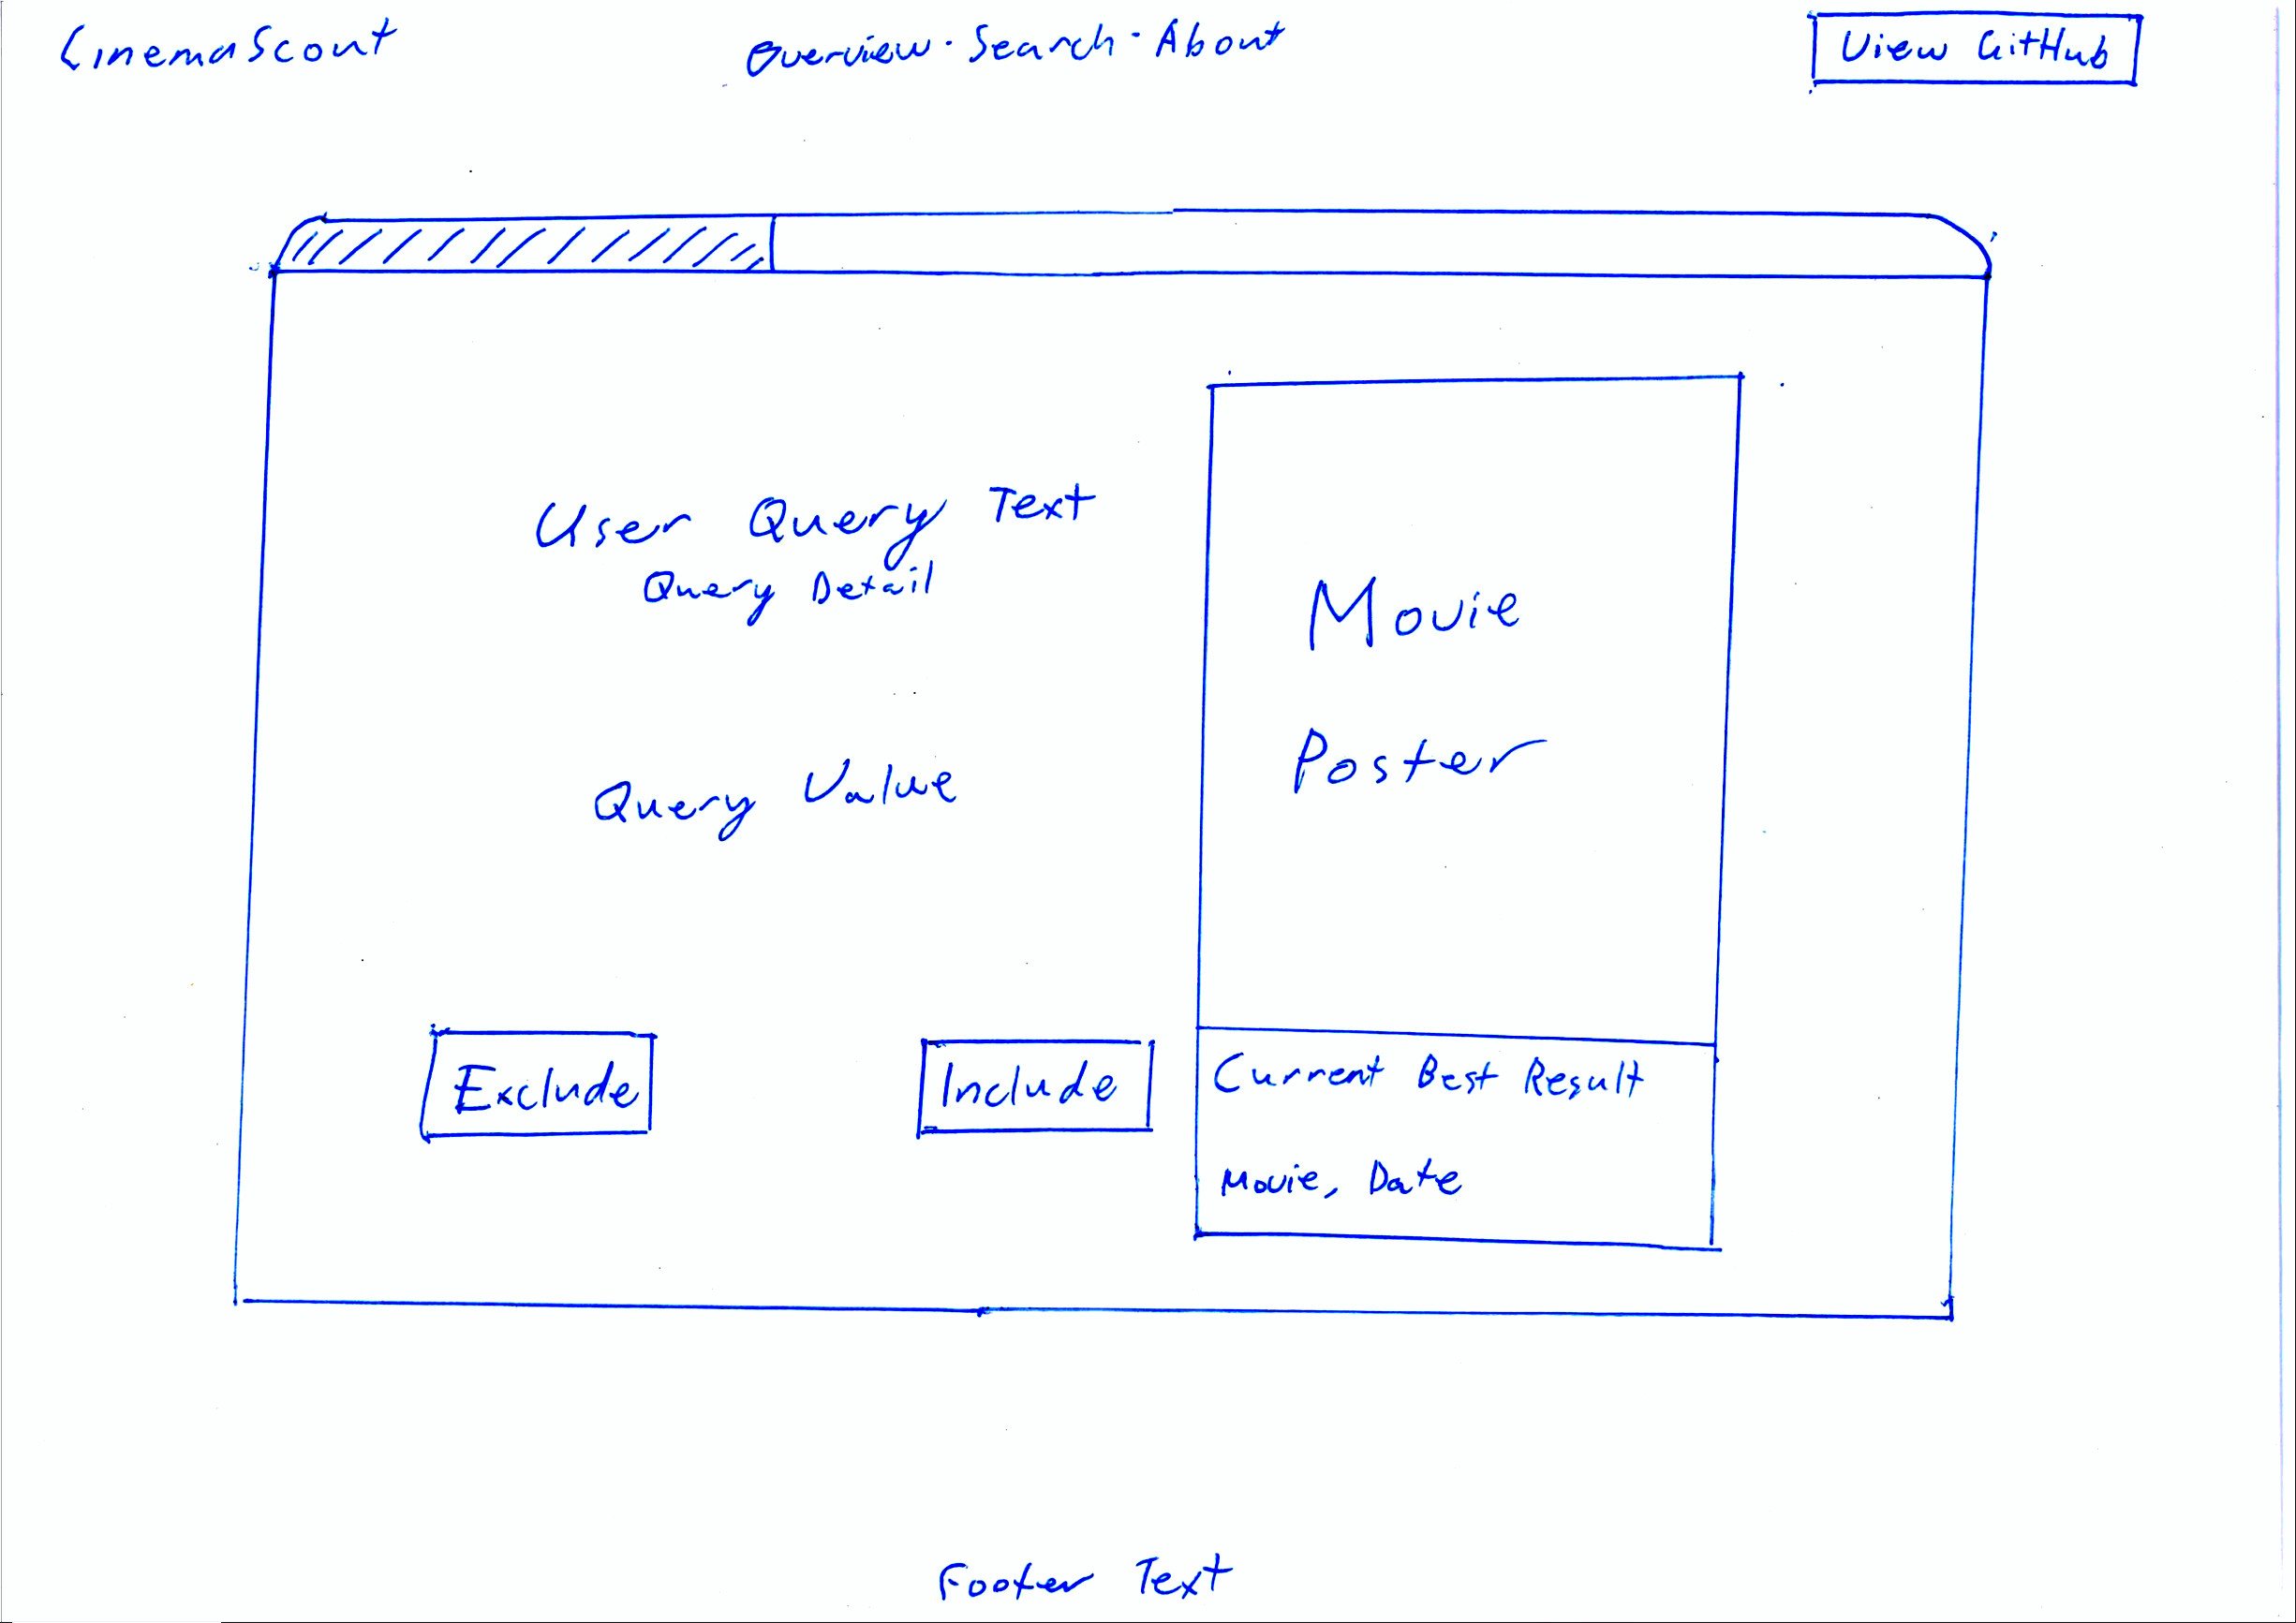 CinemaScout
Overview · Search · About
View GitHub
User Query Text
Query Detail
Query Value
Exclude
Include
Movie
Poster
Current Best Result
Movie, Date
Footer Text